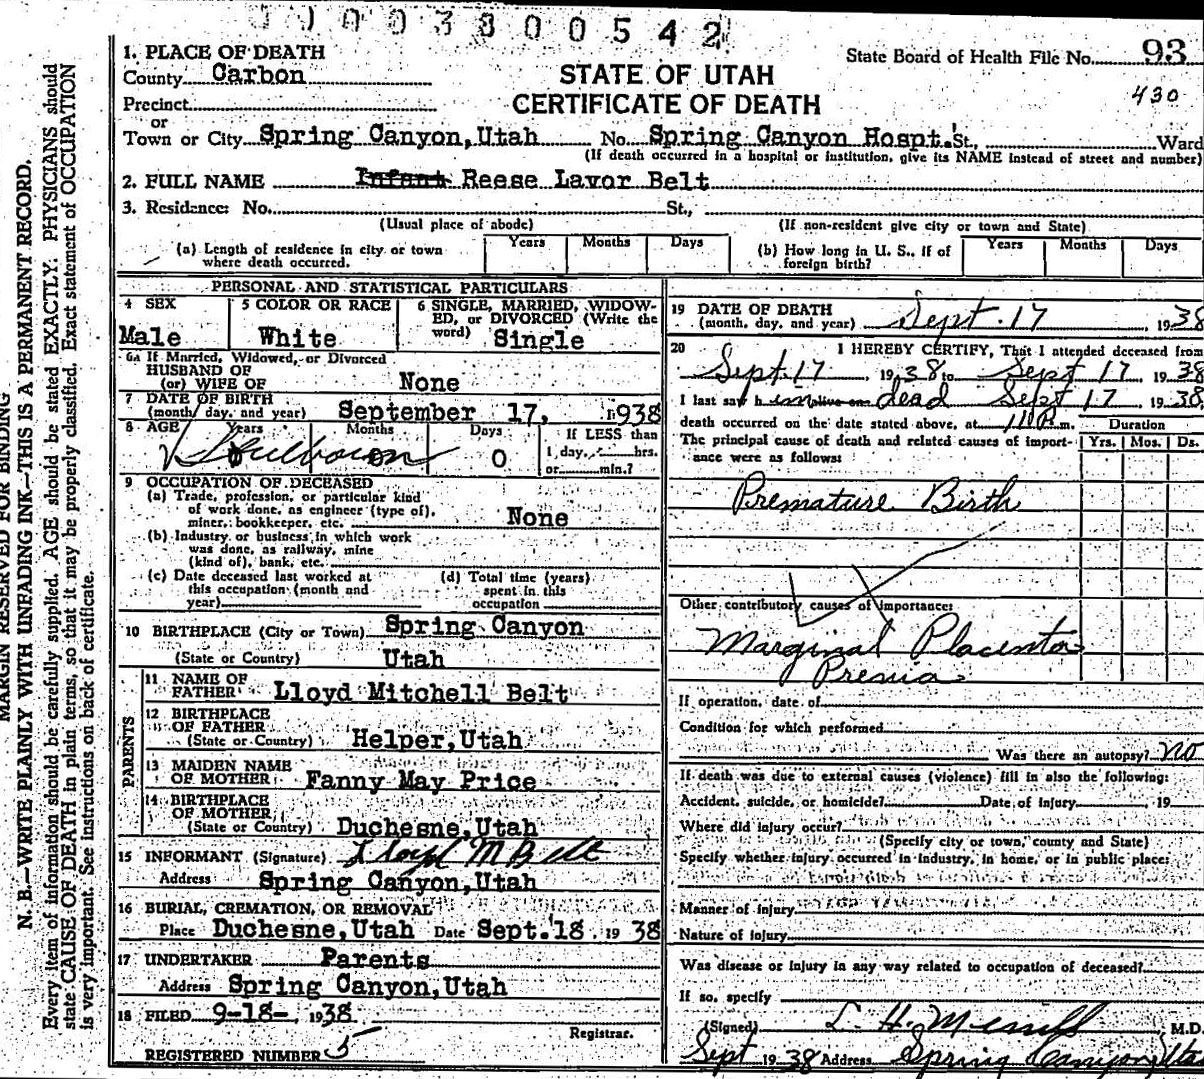 003800542
1. PLACE OF DEATH
County Carbon
STATE OF UTAH
State Board of Health File No. 93
CERTIFICATE OF DEATH
430
Precinct
or
Town or City Spring Canyon, Utah No. Spring Canyon Hospt. St., Ward
(If death occurred in a hospital or institution, give its NAME instead of street and number)
2. FULL NAME Infant Reese Lavor Belt
3. Residence: No. St.,
(Usual place of abode) (If non-resident give city or town and State)
(a) Length of residence in city or town where death occurred. Years Months Days
(b) How long in U. S., if of foreign birth? Years Months Days
PERSONAL AND STATISTICAL PARTICULARS
4 SEX
Male
5 COLOR OR RACE
White
6 SINGLE, MARRIED, WIDOW-
ED, or DIVORCED (Write the
word) Single
6A If Married, Widowed, or Divorced
HUSBAND OF
(or) WIFE OF None
7 DATE OF BIRTH
(month, day, and year) September 17, 1938
8 AGE Years Months Days If LESS than
Stillborn 0 1 day, hrs.
or min.?
9 OCCUPATION OF DECEASED
(a) Trade, profession, or particular kind
of work done, as engineer (type of),
miner, bookkeeper, etc. None
(b) Industry or business in which work
was done, as railway, mine
(kind of), bank, etc.
(c) Date deceased last worked at
this occupation (month and
year)
(d) Total time (years)
spent in this
occupation
10 BIRTHPLACE (City or Town) Spring Canyon
(State or Country) Utah
PARENTS
11 NAME OF
FATHER Lloyd Mitchell Belt
12 BIRTHPLACE
OF FATHER
(State or Country) Helper, Utah
13 MAIDEN NAME
OF MOTHER Fanny May Price
14 BIRTHPLACE
OF MOTHER
(State or Country) Duchesne, Utah
15 INFORMANT (Signature) Lloyd M Belt
Address Spring Canyon, Utah
16 BURIAL, CREMATION, OR REMOVAL
Place Duchesne, Utah Date Sept. 18. 19 38
17 UNDERTAKER Parents
Address Spring Canyon, Utah
18 FILED 9-18-, 1938
Registrar.
REGISTERED NUMBER 5
19 DATE OF DEATH
(month, day, and year) Sept. 17, 1938
20 I HEREBY CERTIFY, That I attended deceased from
Sept. 17, 1938 to Sept 17 1938
I last saw him alive on dead Sept 17 1938
death occurred on the date stated above, at m. Duration
The principal cause of death and related causes of import-
ance were as follows: Yrs. Mos. Ds.
Premature Birth
Other contributory causes of importance:
Marginal Placenta
Prenia
If operation, date of
Condition for which performed
Was there an autopsy? no
If death was due to external causes (violence) fill in also the following:
Accident, suicide, or homicide? Date of injury 19
Where did injury occur?
(Specify city or town, county and State)
Specify whether injury occurred in industry, in home, or in public place:
Manner of injury
Nature of injury
Was disease or injury in any way related to occupation of deceased?
If so, specify
(Signed) L. H. Merrill, M.D.
Sept 1938 Address Spring Canyon, Utah
MARGIN RESERVED FOR BINDING
N. B.—WRITE PLAINLY WITH UNFADING INK—THIS IS A PERMANENT RECORD.
Every item of information should be carefully supplied. AGE should be stated EXACTLY. PHYSICIANS should
state CAUSE OF DEATH in plain terms, so that it may be properly classified. Exact statement of OCCUPATION
is very important. See instructions on back of certificate.